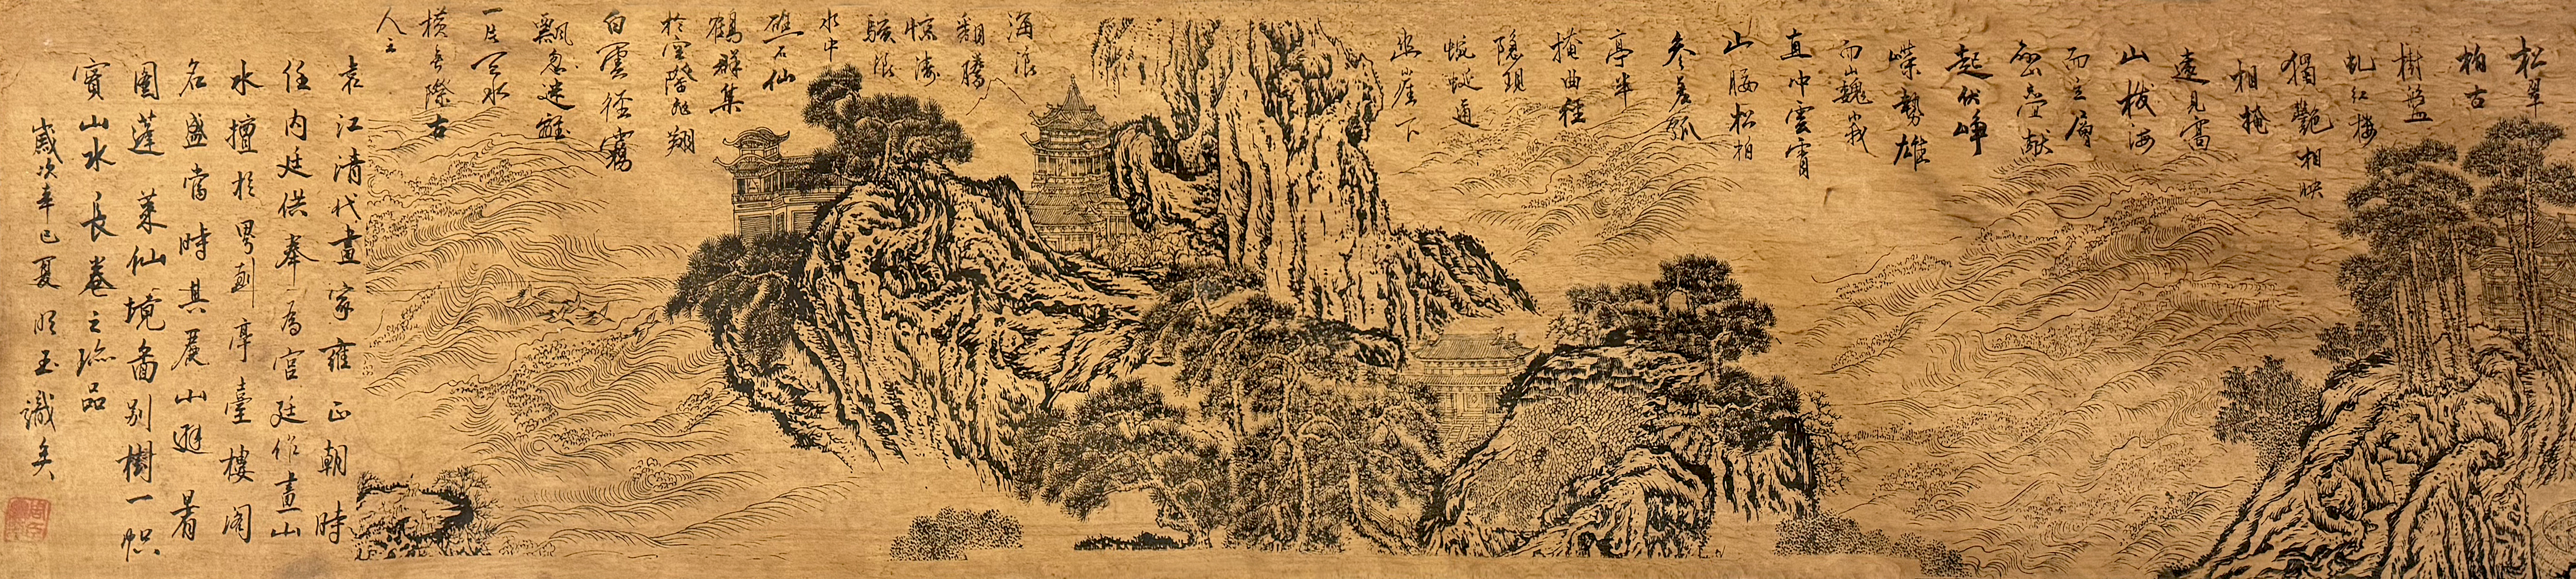 松翠
柏古
樹盤
虬紅楼
獨艷相映
相掩
遠見
山拔海
而立層
巒疊献
起伏崢
嶸勢雄
而山巍峩
直冲雲霄
山腰松柏
参差孤
亭半
掩曲径
隐現
蜿蜒通
幽崖下
海浪
翻騰
惊濤
駭浪
水中
礁石仙
鶴群集
於空際飛翔
白雲径霧
飄忽迷離
一片云水
橫無際古
人云
袁江清代畫家雍正朝時
任内廷供奉為宫廷作畫山
水擅於界劃亭臺樓閣
名盛當時其山避暑
圖蓬萊仙境畵别樹一幟
實山水長卷之珍品
歲次辛巳夏明玉識矣